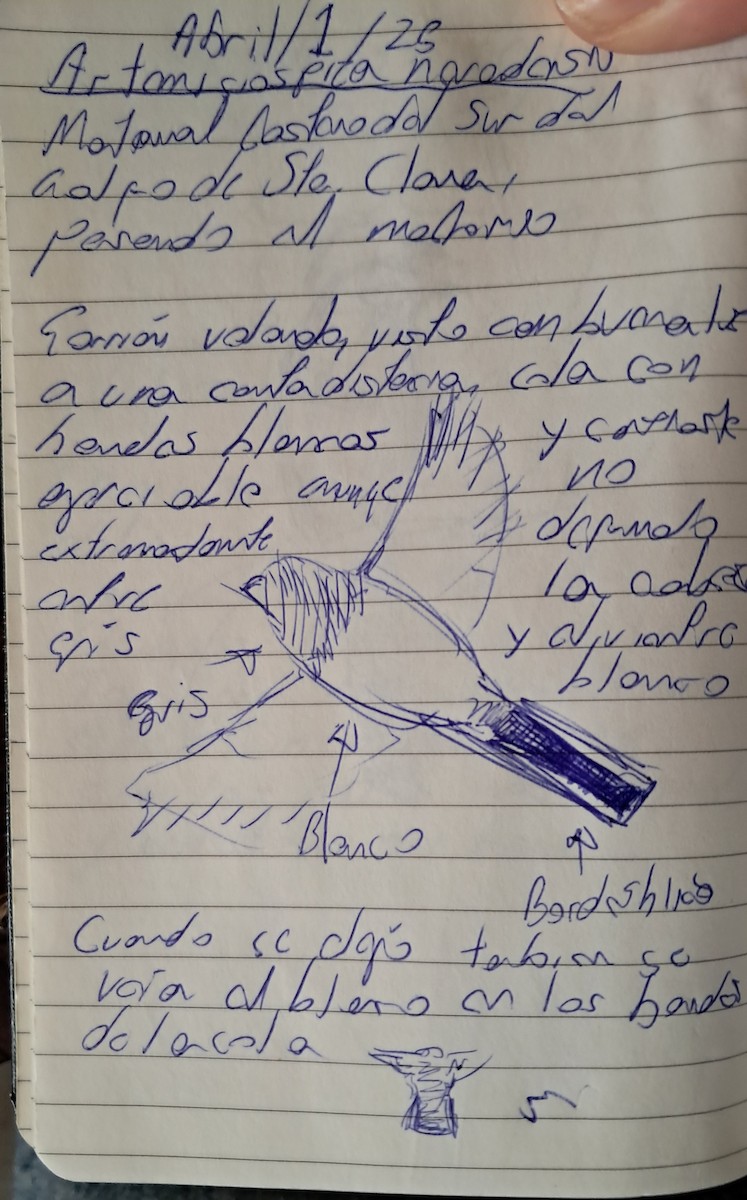 Abril/1/23
Artemisiospiza nevadensis
Matorral costero del sur del
Golfo de Sta. Clara,
pasando el matorral
Gorrión volando, visto con binoculares
a una corta distancia, cola con
bandas blancas y contraste
apreciable aunque no
extremadamente definido
entre la cabeza
gris y el vientre
blanco
Gris
Blanco
Bordes blancos
Cuando se alejó también se
veía el blanco en las bandas
de la cola